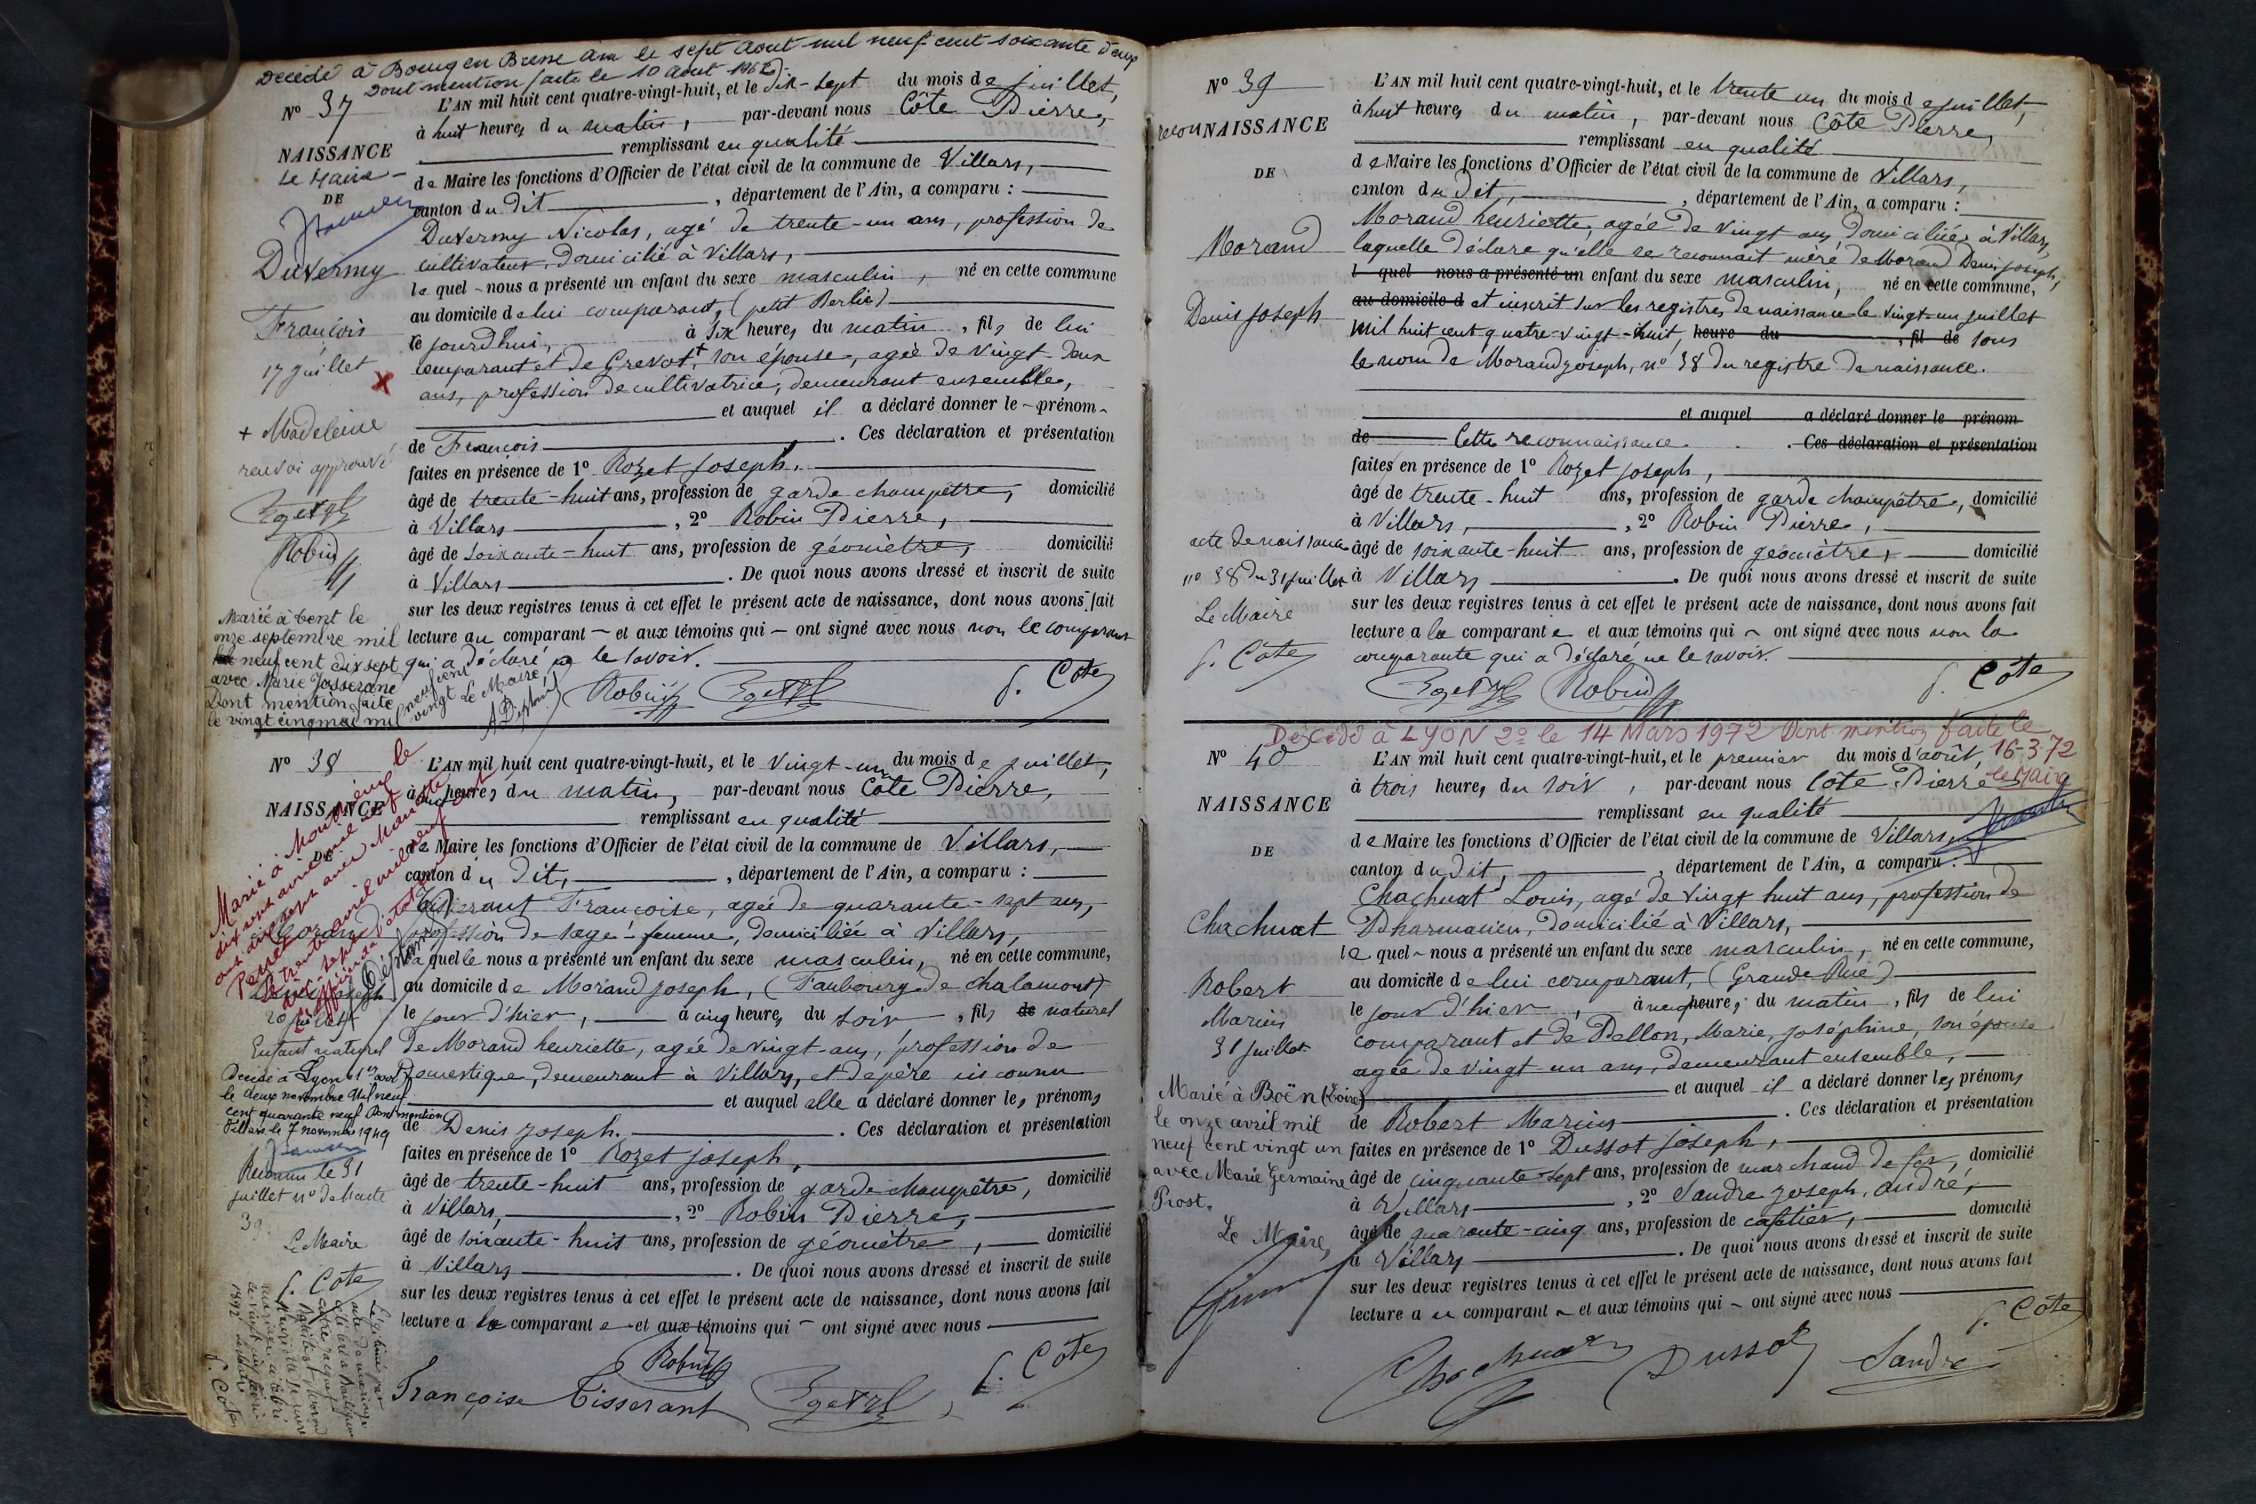 Décédé à Bourg en Bresse Ain le sept Aout mil neuf cent soixante deux
Dont mention faite le 10 Aout 1962
No 37
NAISSANCE
Le Maire
DE
Duvermy
François
17 juillet
+ Madeleine
renvoi approuvé
Robin
Marié à Cent le
onze septembre mil
neuf cent dix sept
avec Marie Josserane
Dont mention faite
le vingt cinq mai mil
neuf cent
vingt Le Maire,
L'AN mil huit cent quatre-vingt-huit, et le dix-sept du mois de juillet,
à huit heures du matin, par-devant nous Côte Pierre,
remplissant en qualité
de Maire les fonctions d'Officier de l'état civil de la commune de Villars,
canton du dit, département de l'Ain, a comparu :
Duvermy Nicolas, agé de trente-un ans, profession de
cultivateur, domicilié à Villars,
le quel nous a présenté un enfant du sexe masculin, né en cette commune
au domicile de lui comparant, (petit Berlie)
ce jourd'hui, à six heures du matin, fils de lui
comparant et de Crevot + son épouse, agée de vingt-deux
ans, profession de cultivatrice, demeurant ensemble,
et auquel il a déclaré donner le prénom
de François. Ces déclaration et présentation
faites en présence de 1o Rozet Joseph,
âgé de trente-huit ans, profession de garde champêtre, domicilié
à Villars, 2o Robin Pierre,
âgé de soixante-huit ans, profession de géomètre, domicilié
à Villars. De quoi nous avons dressé et inscrit de suite
sur les deux registres tenus à cet effet le présent acte de naissance, dont nous avons fait
lecture au comparant et aux témoins qui ont signé avec nous non le comparant
qui a déclaré ne le savoir.
Robin P. Côte
No 38
NAISSANCE
DE
Morand
Denis Joseph
20 juillet
Enfant naturel
Marié à Montrieux le
dix neuf avril mil neuf
cent dix sept avec Mariette
Perret
Décédé à Lyon 1er arrdt
le deux novembre Mil neuf
cent quarante neuf Dont mention
Villars le 7 novembre 1949
Reconnu le 31
juillet no de l'acte
39.
Le Maire
P. Côte
Légitimé par
acte de mariage
1892 Le Maire
P. Côte
L'AN mil huit cent quatre-vingt-huit, et le vingt-un du mois de juillet,
à dix heures du matin, par-devant nous Côte Pierre,
remplissant en qualité
de Maire les fonctions d'Officier de l'état civil de la commune de Villars,
canton du dit, département de l'Ain, a comparu :
Tisserant Françoise, agée de quarante-sept ans,
profession de sage-femme, domiciliée à Villars,
laquelle nous a présenté un enfant du sexe masculin, né en cette commune,
au domicile de Morand Joseph, (Faubourg de Chalamont)
le jour d'hier, à cinq heures du soir, fils de naturel
de Morand henriette, agée de vingt-ans, profession de
domestique, demeurant à Villars, et de père inconnu
et auquel elle a déclaré donner les prénoms
de Denis Joseph. Ces déclaration et présentation
faites en présence de 1o Rozet Joseph,
âgé de trente-huit ans, profession de garde champêtre, domicilié
à Villars, 2o Robin Pierre,
âgé de soixante-huit ans, profession de géomètre, domicilié
à Villars. De quoi nous avons dressé et inscrit de suite
sur les deux registres tenus à cet effet le présent acte de naissance, dont nous avons fait
lecture a la comparante et aux témoins qui ont signé avec nous
Robin
Françoise Tisserant P. Côte
No 39
reconNAISSANCE
DE
Morand
Denis Joseph
acte de naissance
no 38 du 31 juillet
Le Maire
P. Côte
L'AN mil huit cent quatre-vingt-huit, et le trente un du mois de juillet,
à huit heures du matin, par-devant nous Côte Pierre,
remplissant en qualité
de Maire les fonctions d'Officier de l'état civil de la commune de Villars,
canton du dit, département de l'Ain, a comparu :
Morand henriette, agée de vingt ans, domiciliée à Villars,
laquelle déclare qu'elle se reconnait mère de Morand Denis Joseph,
l quel nous a présenté un enfant du sexe masculin, né en cette commune,
au domicile d et inscrit sur les registres de naissance le vingt-un juillet
mil huit cent quatre-vingt-huit, heure du, fil de sous
le nom de Morand Joseph, no 38 du registre de naissance.
et auquel a déclaré donner le prénom
de Cette reconnaissance. Ces déclaration et présentation
faites en présence de 1o Rozet Joseph,
âgé de trente-huit ans, profession de garde champêtre, domicilié
à Villars, 2o Robin Pierre,
âgé de soixante-huit ans, profession de géomètre, domicilié
à Villars. De quoi nous avons dressé et inscrit de suite
sur les deux registres tenus à cet effet le présent acte de naissance, dont nous avons fait
lecture a la comparante et aux témoins qui ont signé avec nous non la
comparante qui a déclaré ne le savoir.
Robin P. Côte
Décédé à LYON 2e le 14 Mars 1972 Dont mention faite le
16-3-72
le Maire
No 40
NAISSANCE
DE
Chachuat
Robert
Marius
31 juillet
Marié à Boën (Loire)
le onze avril mil
neuf cent vingt un
avec Marie Germaine
Prost.
Le Maire,
L'AN mil huit cent quatre-vingt-huit, et le premier du mois d'août,
à trois heures du soir, par-devant nous Côte Pierre
remplissant en qualité
de Maire les fonctions d'Officier de l'état civil de la commune de Villars,
canton du dit, département de l'Ain, a comparu :
Chachuat Louis, agé de vingt huit ans, profession de
Pharmacien, domicilié à Villars,
le quel nous a présenté un enfant du sexe masculin, né en cette commune,
au domicile de lui comparant, (Grande Rue)
le jour d'hier, à neuf heures du matin, fils de lui
comparant et de Pellon, Marie, Joséphine, son épouse
agée de vingt-un ans, demeurant ensemble,
et auquel il a déclaré donner les prénoms
de Robert Marius. Ces déclaration et présentation
faites en présence de 1o Dussot Joseph,
âgé de cinquante-sept ans, profession de marchand de fer, domicilié
à Villars, 2o Sandre Joseph, André,
âgé de quarante-cinq ans, profession de cafetier, domicilié
à Villars. De quoi nous avons dressé et inscrit de suite
sur les deux registres tenus à cet effet le présent acte de naissance, dont nous avons fait
lecture au comparant et aux témoins qui ont signé avec nous
P. Côte
Chachuat Dussot Sandre